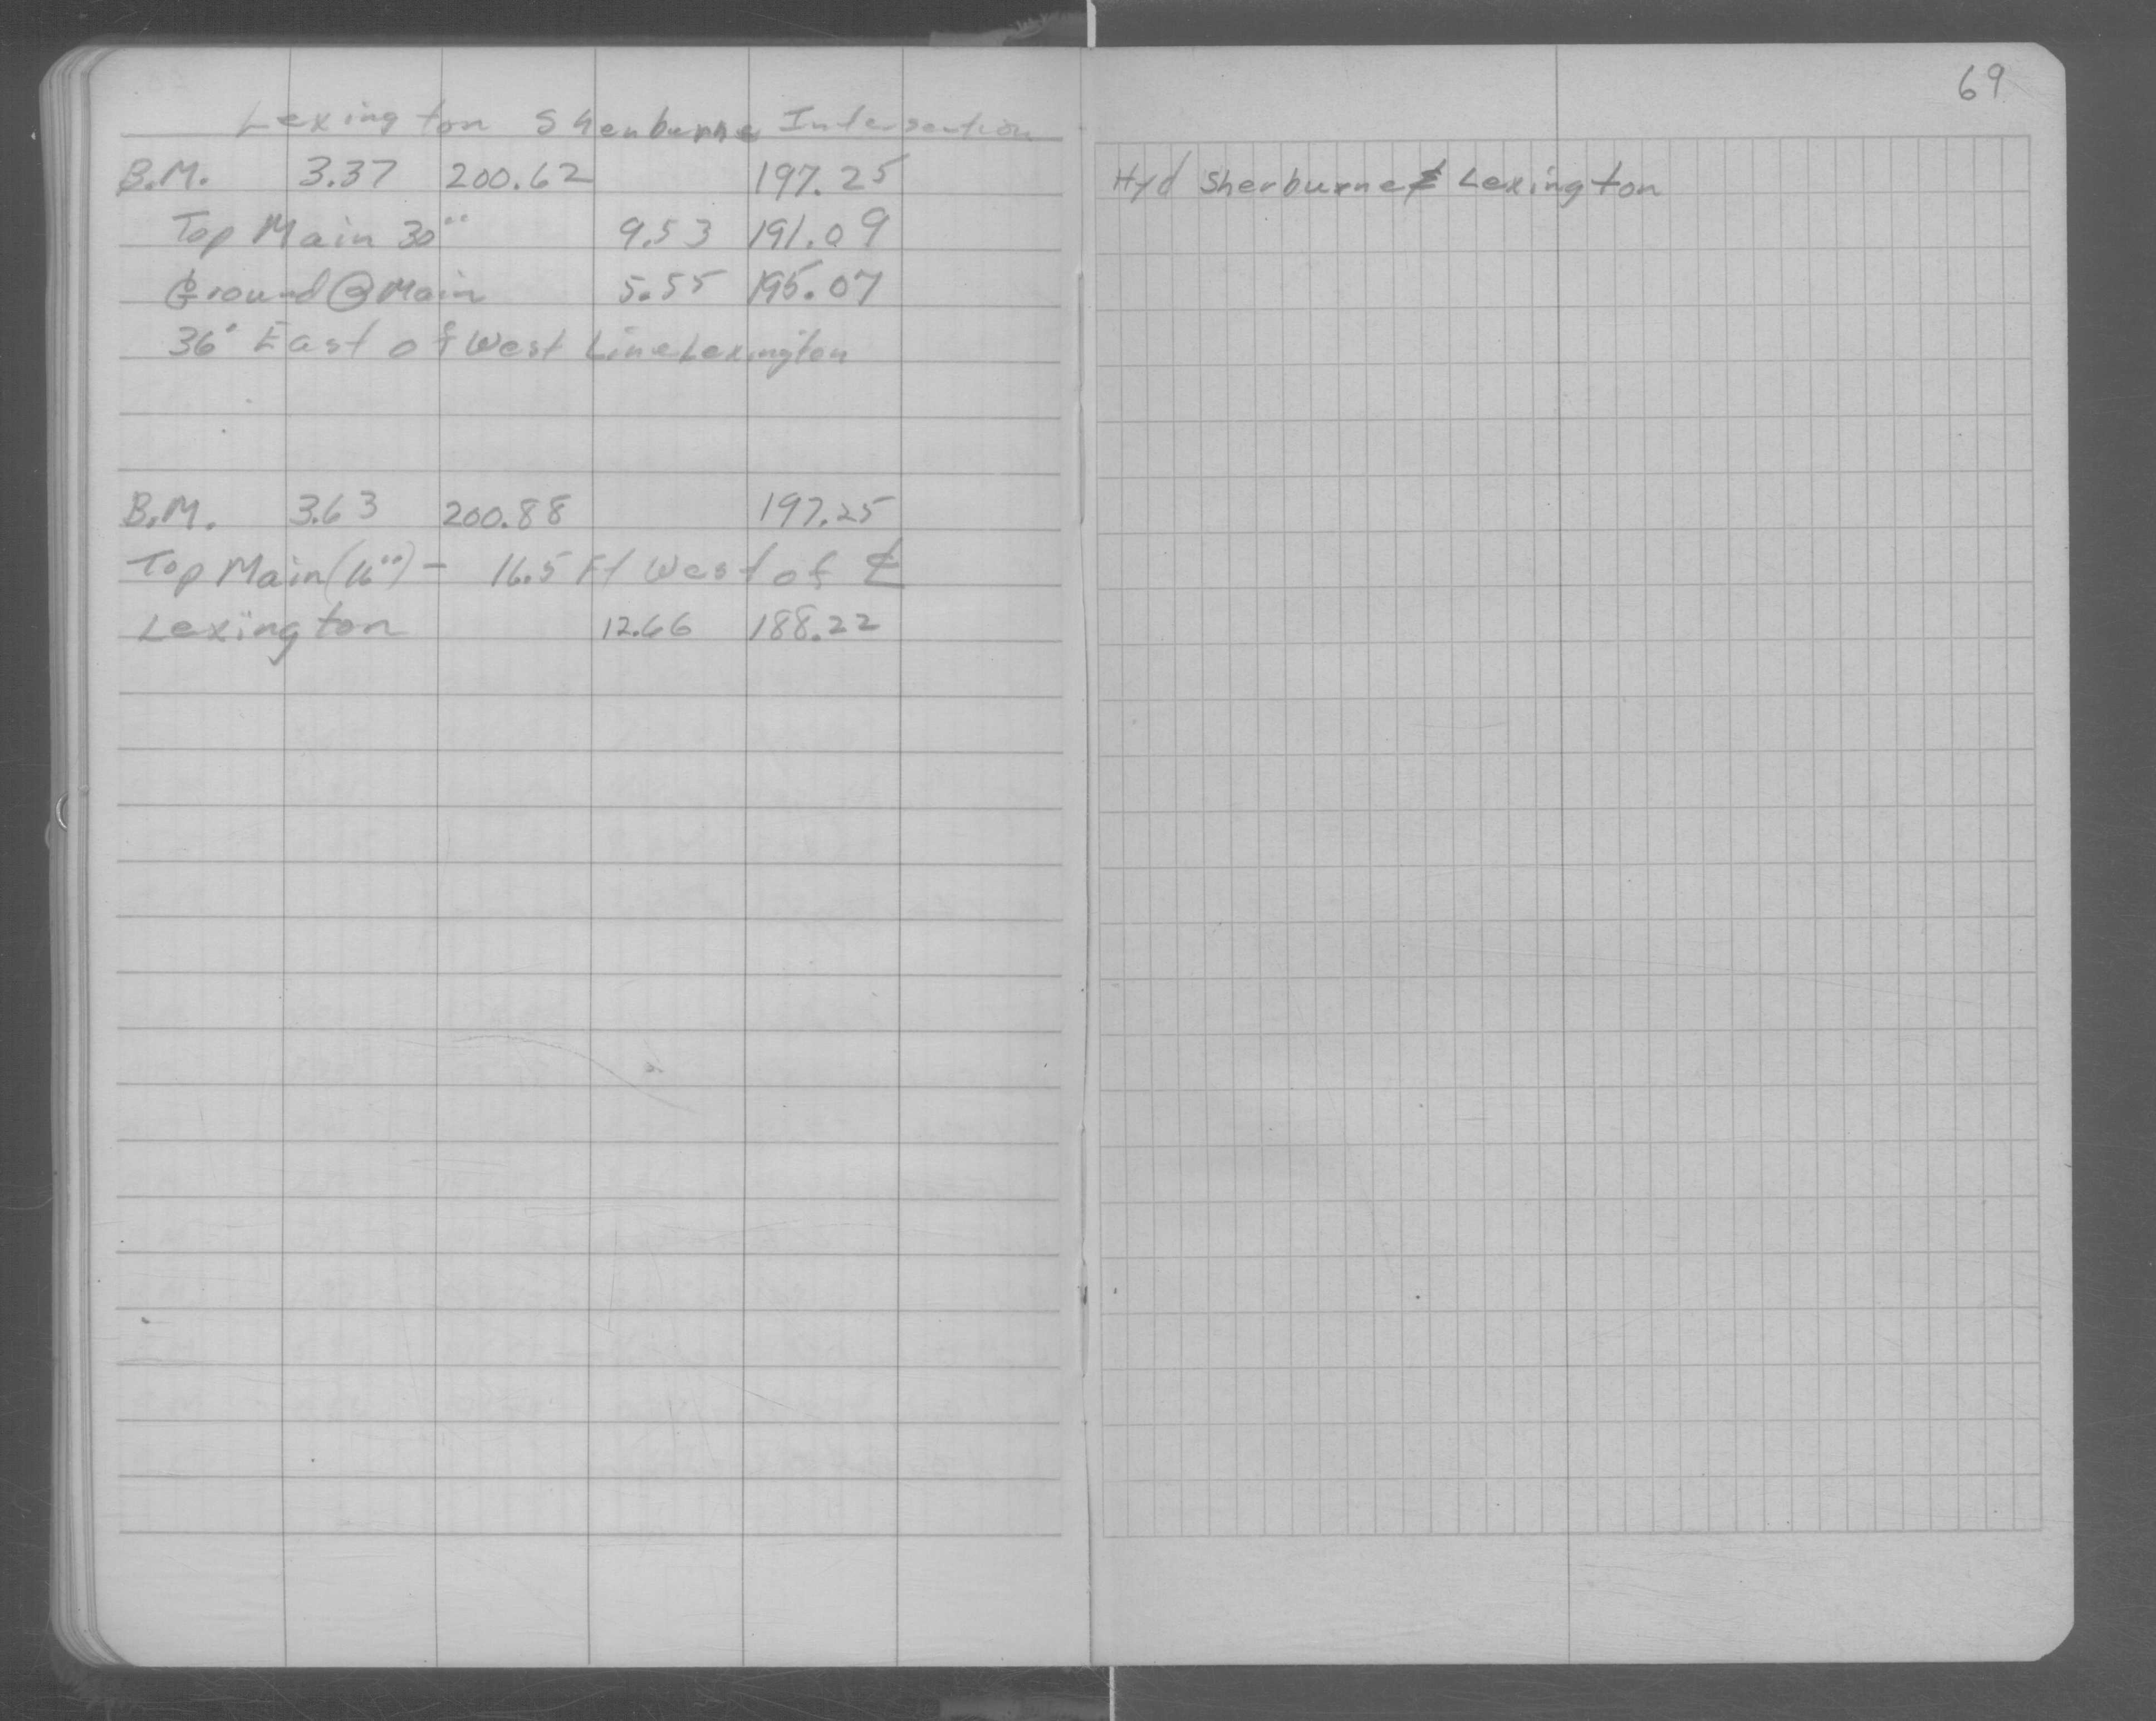 Lexington Shenburne Intersection
B.M. 3.37 200.62 197.25
Top Main 30" 9.53 191.09
Ground @ Main 5.55 195.07
36' East of West Line Lexington
B.M. 3.63 200.88 197.25
Top Main (16") - 16.5 Ft West of ℄
Lexington 12.66 188.22
69
Hyd Sherburne & Lexington